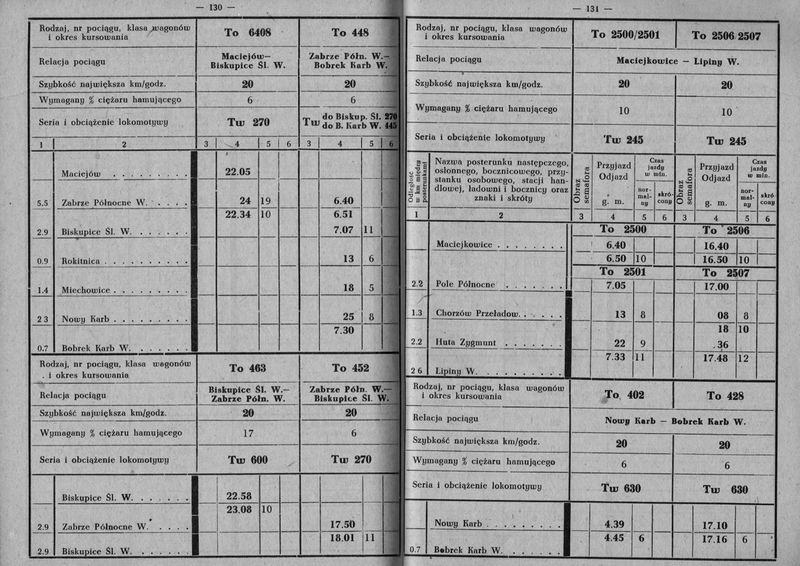 — 130 —
Rodzaj, nr pociągu, klasa wagonów i okres kursowania To 6408 To 448
Relacja pociągu Maciejów— Biskupice Śl. W. Zabrze Półn. W.— Bobrek Karb W.
Szybkość największa km/godz. 20 20
Wymagany % ciężaru hamującego 6 6
Seria i obciążenie lokomotywy Tw 270 Tw do Biskup. Śl. 270 do B. Karb W. 445
1 2 3 4 5 6 3 4 5 6
Maciejów . . . . . . . . 22.05
5.5 Zabrze Północne W. . . . . . 24 19 6.40
22.34 10 6.51
2.9 Biskupice Śl. W. . . . . . . 7.07 11
0.9 Rokitnica . . . . . . . . . 13 6
1.4 Miechowice . . . . . . . . 18 5
2 3 Nowy Karb . . . . . . . . . 25 8
7.30
0.7 Bobrek Karb W. . . . . . .
Rodzaj, nr pociągu, klasa wagonów i okres kursowania To 463 To 452
Relacja pociągu Biskupice Śl. W.— Zabrze Półn. W. Zabrze Półn. W.— Biskupice Śl. W.
Szybkość największa km/godz. 20 20
Wymagany % ciężaru hamującego 17 6
Seria i obciążenie lokomotywy Tw 600 Tw 270
Biskupice Śl. W. . . . . . . 22.58
23.08 10
2.9 Zabrze Północne W. . . . . 17.50
18.01 11
2.9 Biskupice Śl. W. . . . . . .
— 131 —
Rodzaj, nr pociągu, klasa wagonów i okres kursowania To 2500/2501 To 2506 2507
Relacja pociągu Maciejkowice — Lipiny W.
Szybkość największa km/godz. 20 20
Wymagany % ciężaru hamującego 10 10
Seria i obciążenie lokomotywy Tw 245 Tw 245
Odległość w km między posterunkami
Nazwa posterunku następczego, osłonnego, bocznicowego, przystanku osobowego, stacji handlowej, ładowni i bocznicy oraz znaki i skróty
Obraz semafora Przyjazd Odjazd g. m. Czas jazdy w min. normalny skrócony
Obraz semafora Przyjazd Odjazd g. m. Czas jazdy w min. normalny skrócony
1 2 3 4 5 6 3 4 5 6
To 2500 To 2506
Maciejkowice . . . . . . . . 6.40 16.40
6.50 10 16.50 10
To 2501 To 2507
2.2 Pole Północne . . . . . . . 7.05 17.00
1.3 Chorzów Przeładow. . . . . . 13 8 08 8
18 10
2.2 Huta Zygmunt . . . . . . . 22 9 .36
7.33 11 17.48 12
2 6 Lipiny W. . . . . . . . . .
Rodzaj, nr pociągu, klasa wagonów i okres kursowania To 402 To 428
Relacja pociągu Nowy Karb — Bobrek Karb W.
Szybkość największa km/godz. 20 20
Wymagany % ciężaru hamującego 6 6
Seria i obciążenie lokomotywy Tw 630 Tw 630
Nowy Karb . . . . . . . . . 4.39 17.10
4.45 6 17.16 6
0.7 Bobrek Karb W. . . . . . .